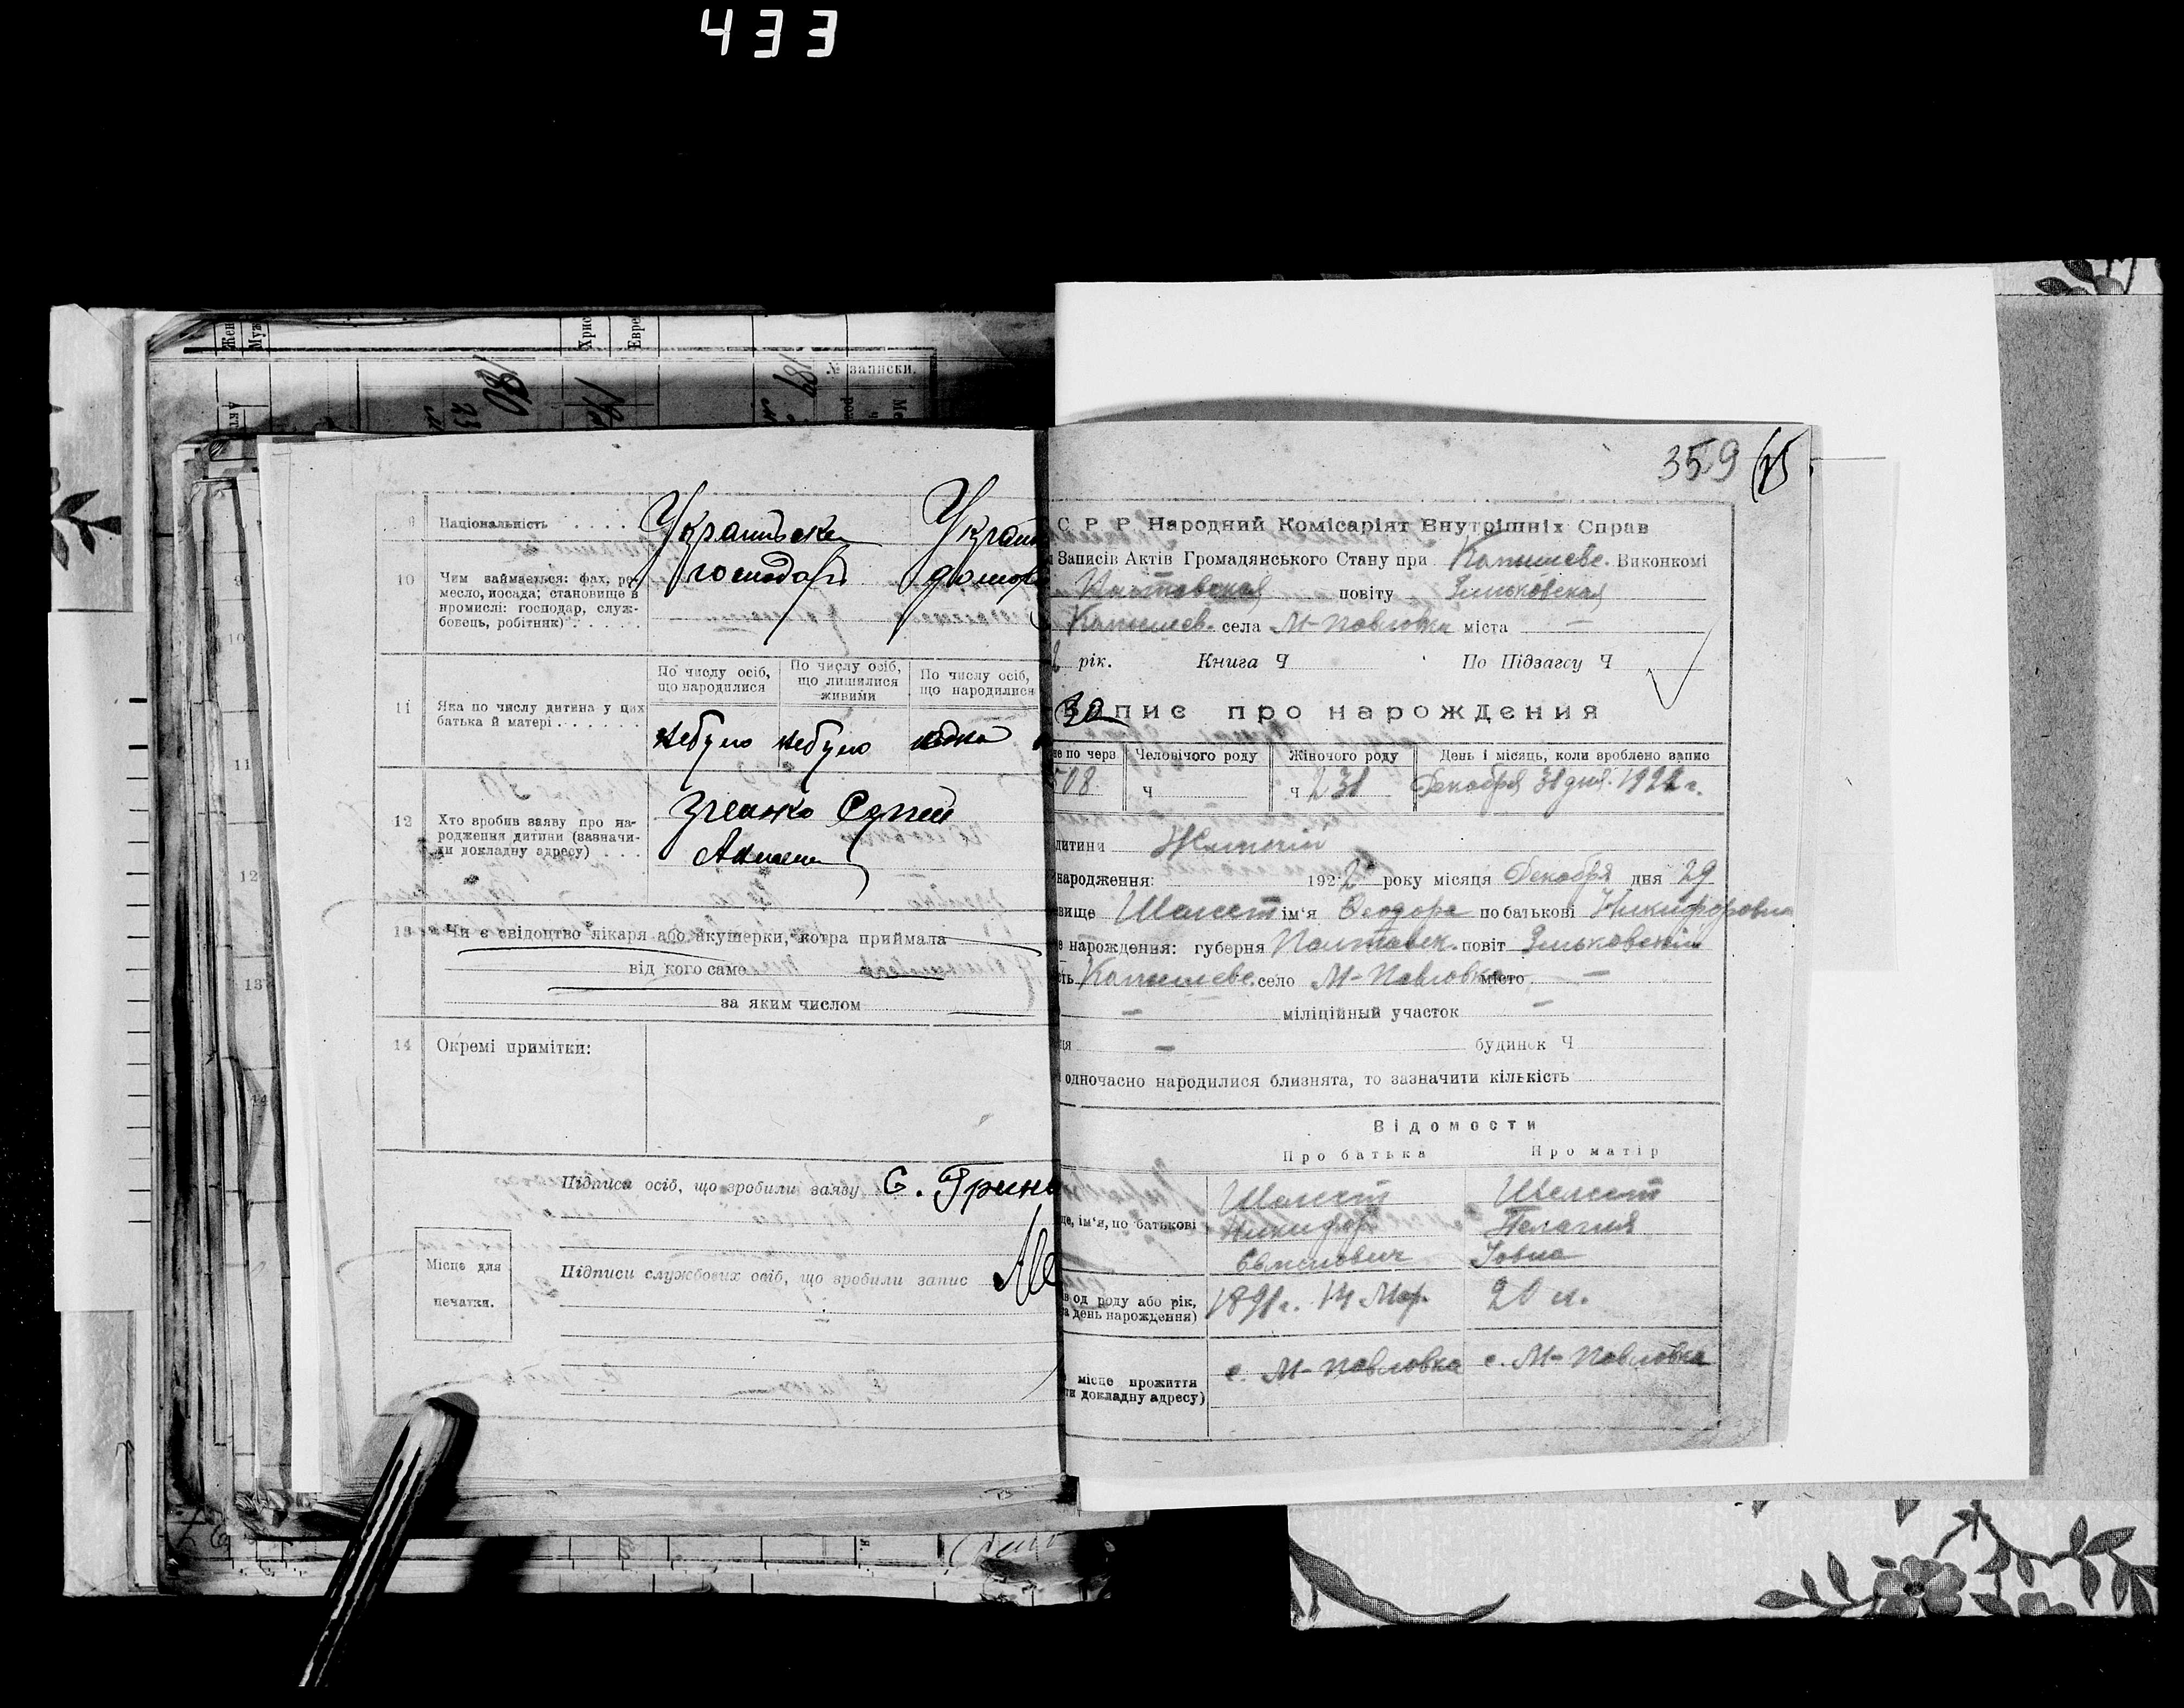 433
Жен
Муж
Хрис
Евре
№ записки.
180
189
23
9 Національність . . . .
Українське
Україн
10 Чим займається: фах, ре-
месло, посада; становище в
промислі: господар, служ-
бовець, робітник) . . . . .
господарь
домов
11 Яка по числу дитина у цих
батька й матері . . . . . .
По числу осіб,
що народилися
По числу осіб,
що лишилися
живими
По числу осіб,
що народилися
небуло небуло
12 Хто зробив заяву про на-
родження дитини (вазначи-
ти докладну адресу) . . .
Сергій
13 Чи є свідоцтво лікаря або акушерки, котра приймала
від кого саме
за яким числом
14 Окремі примітки:
Підписи осіб, що зробили заяву С. Грин
Місце для
печатки.
Підписи службових осіб, що зробили запис
359
С. Р. Р. Народний Комісаріят Внутрішніх Справ
Записів Актів Громадянського Стану при Капышеве. Виконкомі
Полтавская повіту Зиньковская
Капышев. села М-Павловка міста —
2 рік. Книга Ч По Підзагсу Ч
30
апис про нарождения
не по черв Человічого роду Жіночого роду День і місяць, коли зроблено запис
508 ч ч 231 Декабря 31 дня. 1922 г.
дитини Женский
народження: 1922 року місяця Декабря дня 29
вище Шелест ім'я Феодора по батькові Никифоровна
е нарождення: губерня Полтавск. повіт Зиньковский
сть Капышеве. село М-Павловка місто —
— міліційный участок —
ця — будинок Ч
одночасно народилися близнята, то зазначити кількість
Відомости
Про батька Про матір
ще, ім'я, по батькові
Шелест Шелест
Никифор Пелагия
Іовна
в од роду або рік,
а день нарождення)
1891 г. 14 Мар. 20 л.
місце прожиття
ти докладну адресу)
с. М-Павловка с. М-Павловка